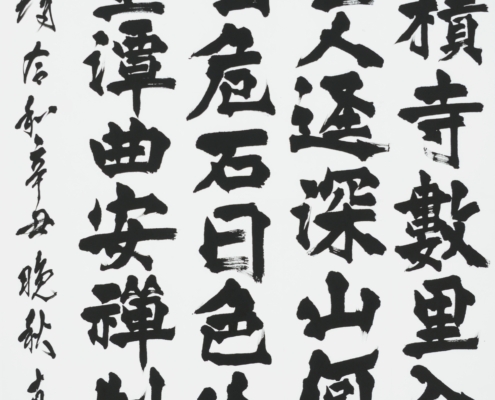 積寺數里入
人逕深山何
危石日色
潭曲安禪制
令和辛丑晚秋